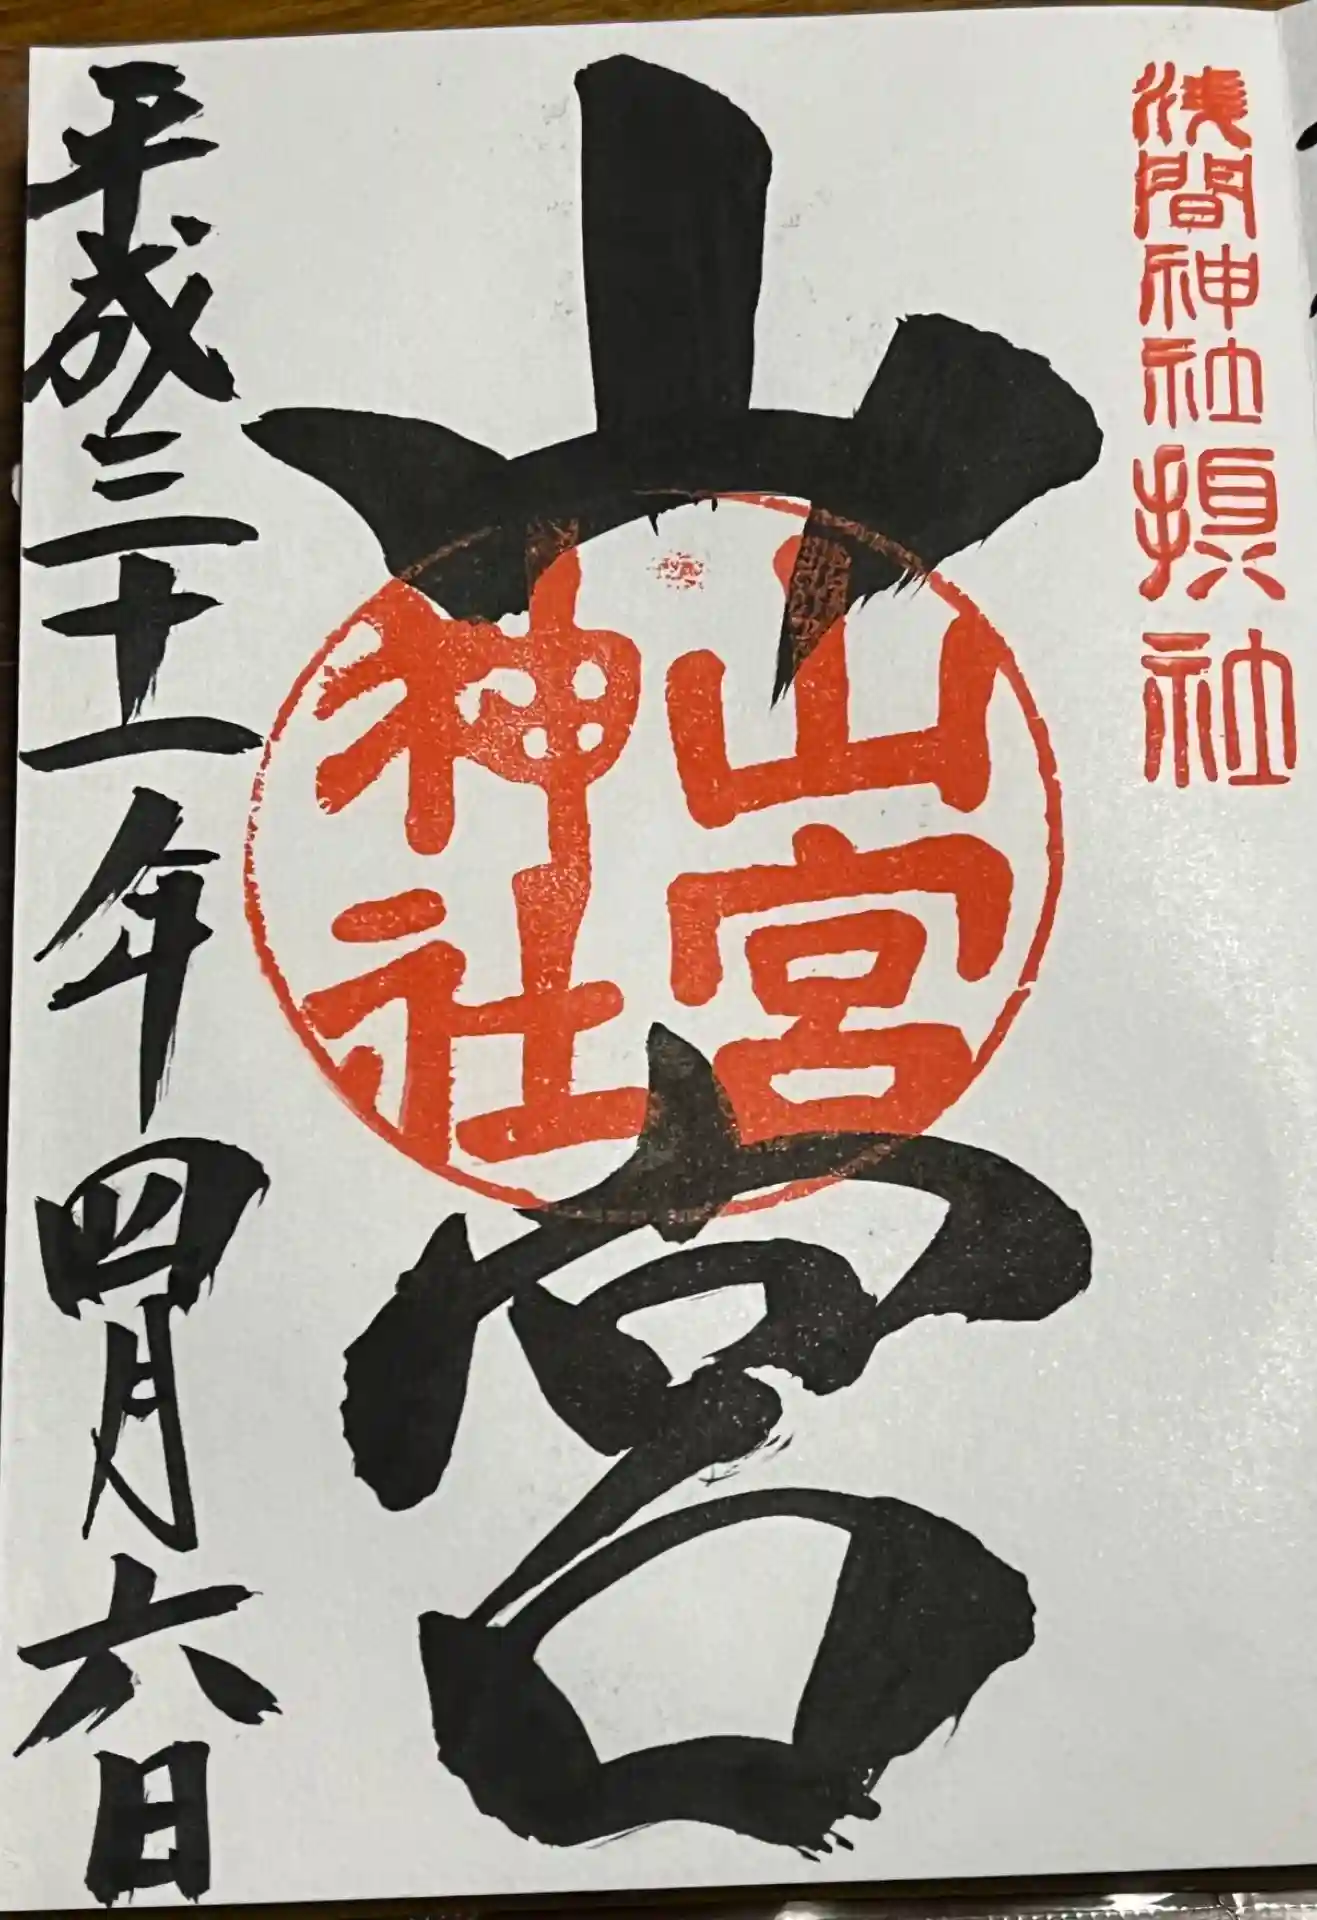 浅間神社摂社
山宮
山宮
神社
平成三十一年四月六日